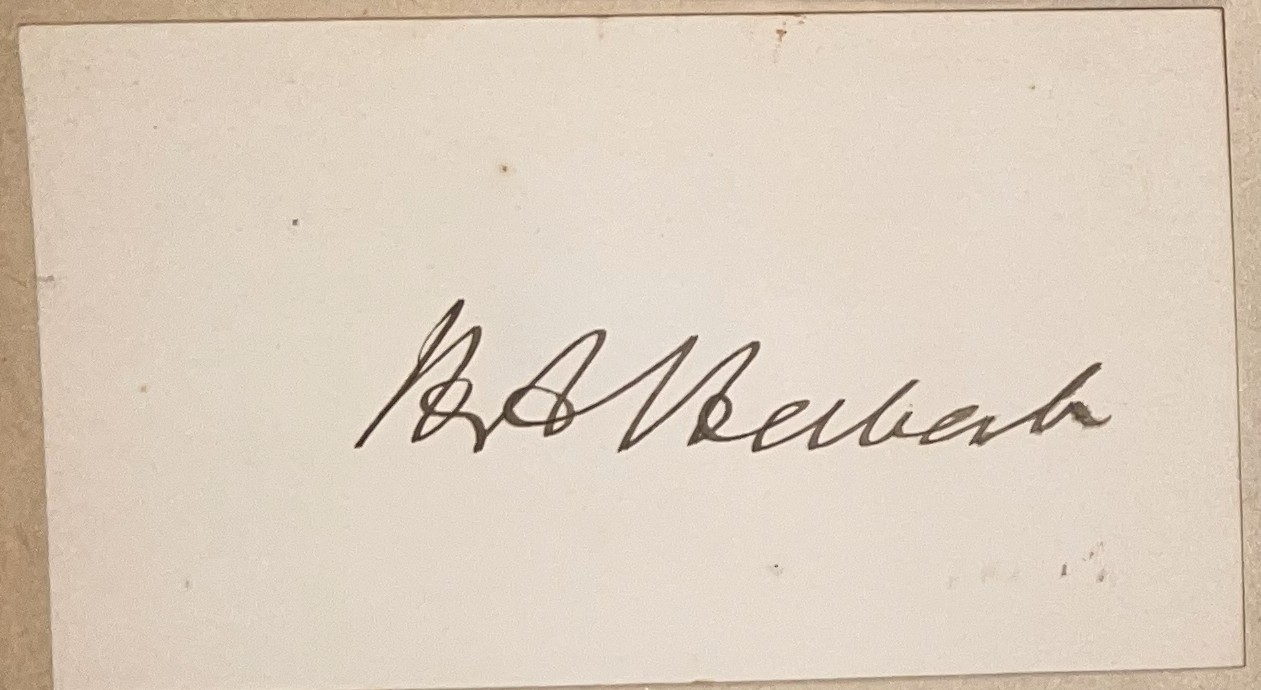 H. A. Herbert